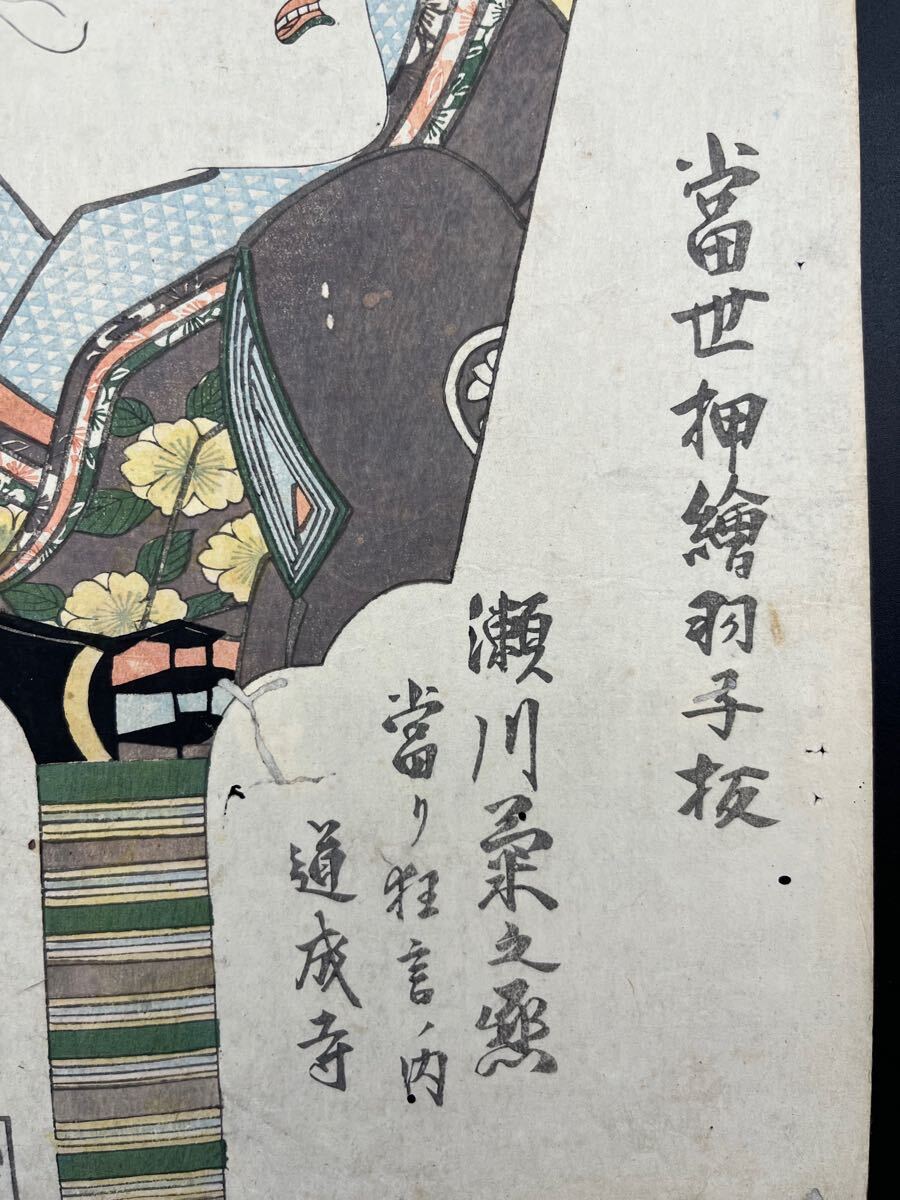 當世押繪羽子板
瀬川菊之丞
當り狂言ノ内
道成寺